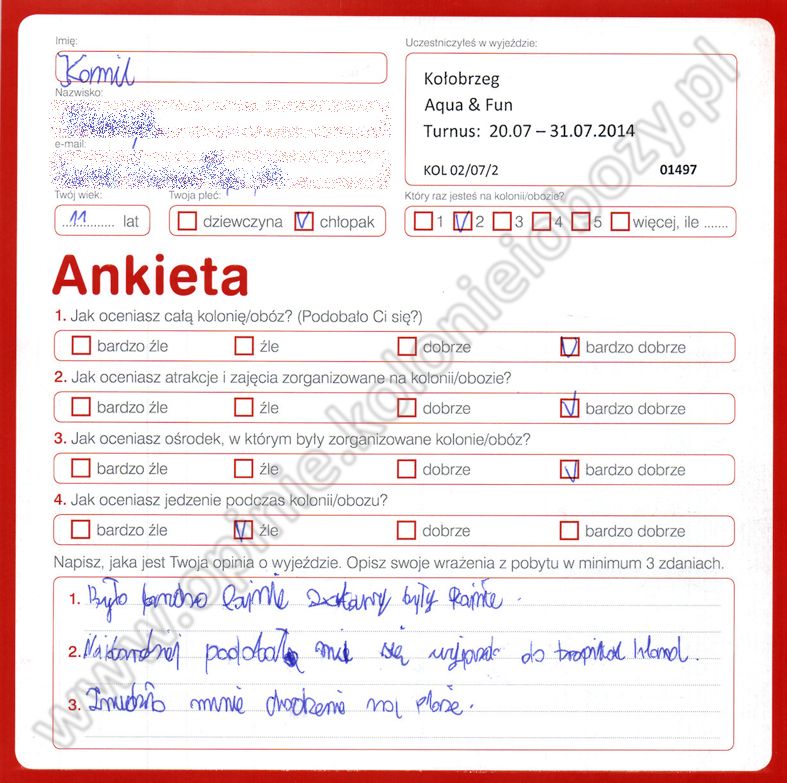 Imię:
Kamil
Uczestniczyłeś w wyjeździe:
Kołobrzeg
Aqua & Fun
Turnus: 20.07 – 31.07.2014
KOL 02/07/2 01497
Nazwisko:
e-mail:
Twój wiek:
11 lat
Twoja płeć:
dziewczyna chłopak
Który raz jesteś na kolonii/obozie?
1 2 3 4 5 więcej, ile .......
Ankieta
1. Jak oceniasz całą kolonię/obóz? (Podobało Ci się?)
bardzo źle źle dobrze bardzo dobrze
2. Jak oceniasz atrakcje i zajęcia zorganizowane na kolonii/obozie?
bardzo źle źle dobrze bardzo dobrze
3. Jak oceniasz ośrodek, w którym były zorganizowane kolonie/obóz?
bardzo źle źle dobrze bardzo dobrze
4. Jak oceniasz jedzenie podczas kolonii/obozu?
bardzo źle źle dobrze bardzo dobrze
Napisz, jaka jest Twoja opinia o wyjeździe. Opisz swoje wrażenia z pobytu w minimum 3 zdaniach.
1. Było bardzo fajnie były fajne.
2. Najbardziej podobał mi się wyjazd do tropikal Island.
3. mnie chodzenie na plaże.
www.opinie.kolonieiobozy.pl